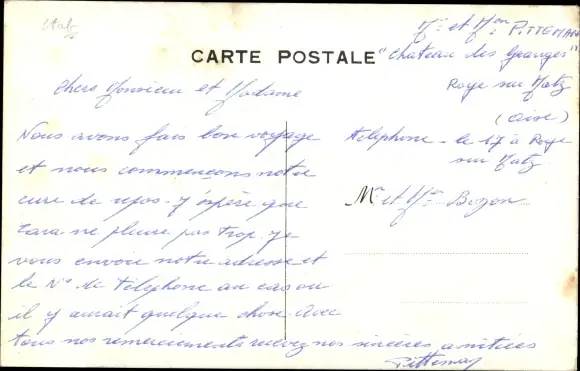 Mr et Mme PITTEMAN
CARTE POSTALE
"Chateau des Granges"
Roye sur Matz
(Oise)
Chers Monsieur et Madame
Téléphone - le 17 à Roye
sur Matz
Nous avons fais bon voyage
et nous commençons notre
cure de repos. J'espère que
cara ne pleure pas trop. Je
vous envoie notre adresse et
le N° de téléphone au cas ou
il y aurait quelque chose. Avec
tous nos remerciements recevez nos sincères amitiées
Mr et Mme Bizon
Pitteman